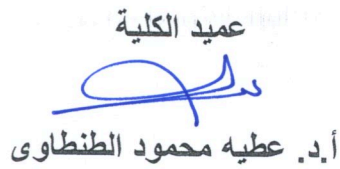 عميد الكلية
أ.د. عطيه محمود الطنطاوى